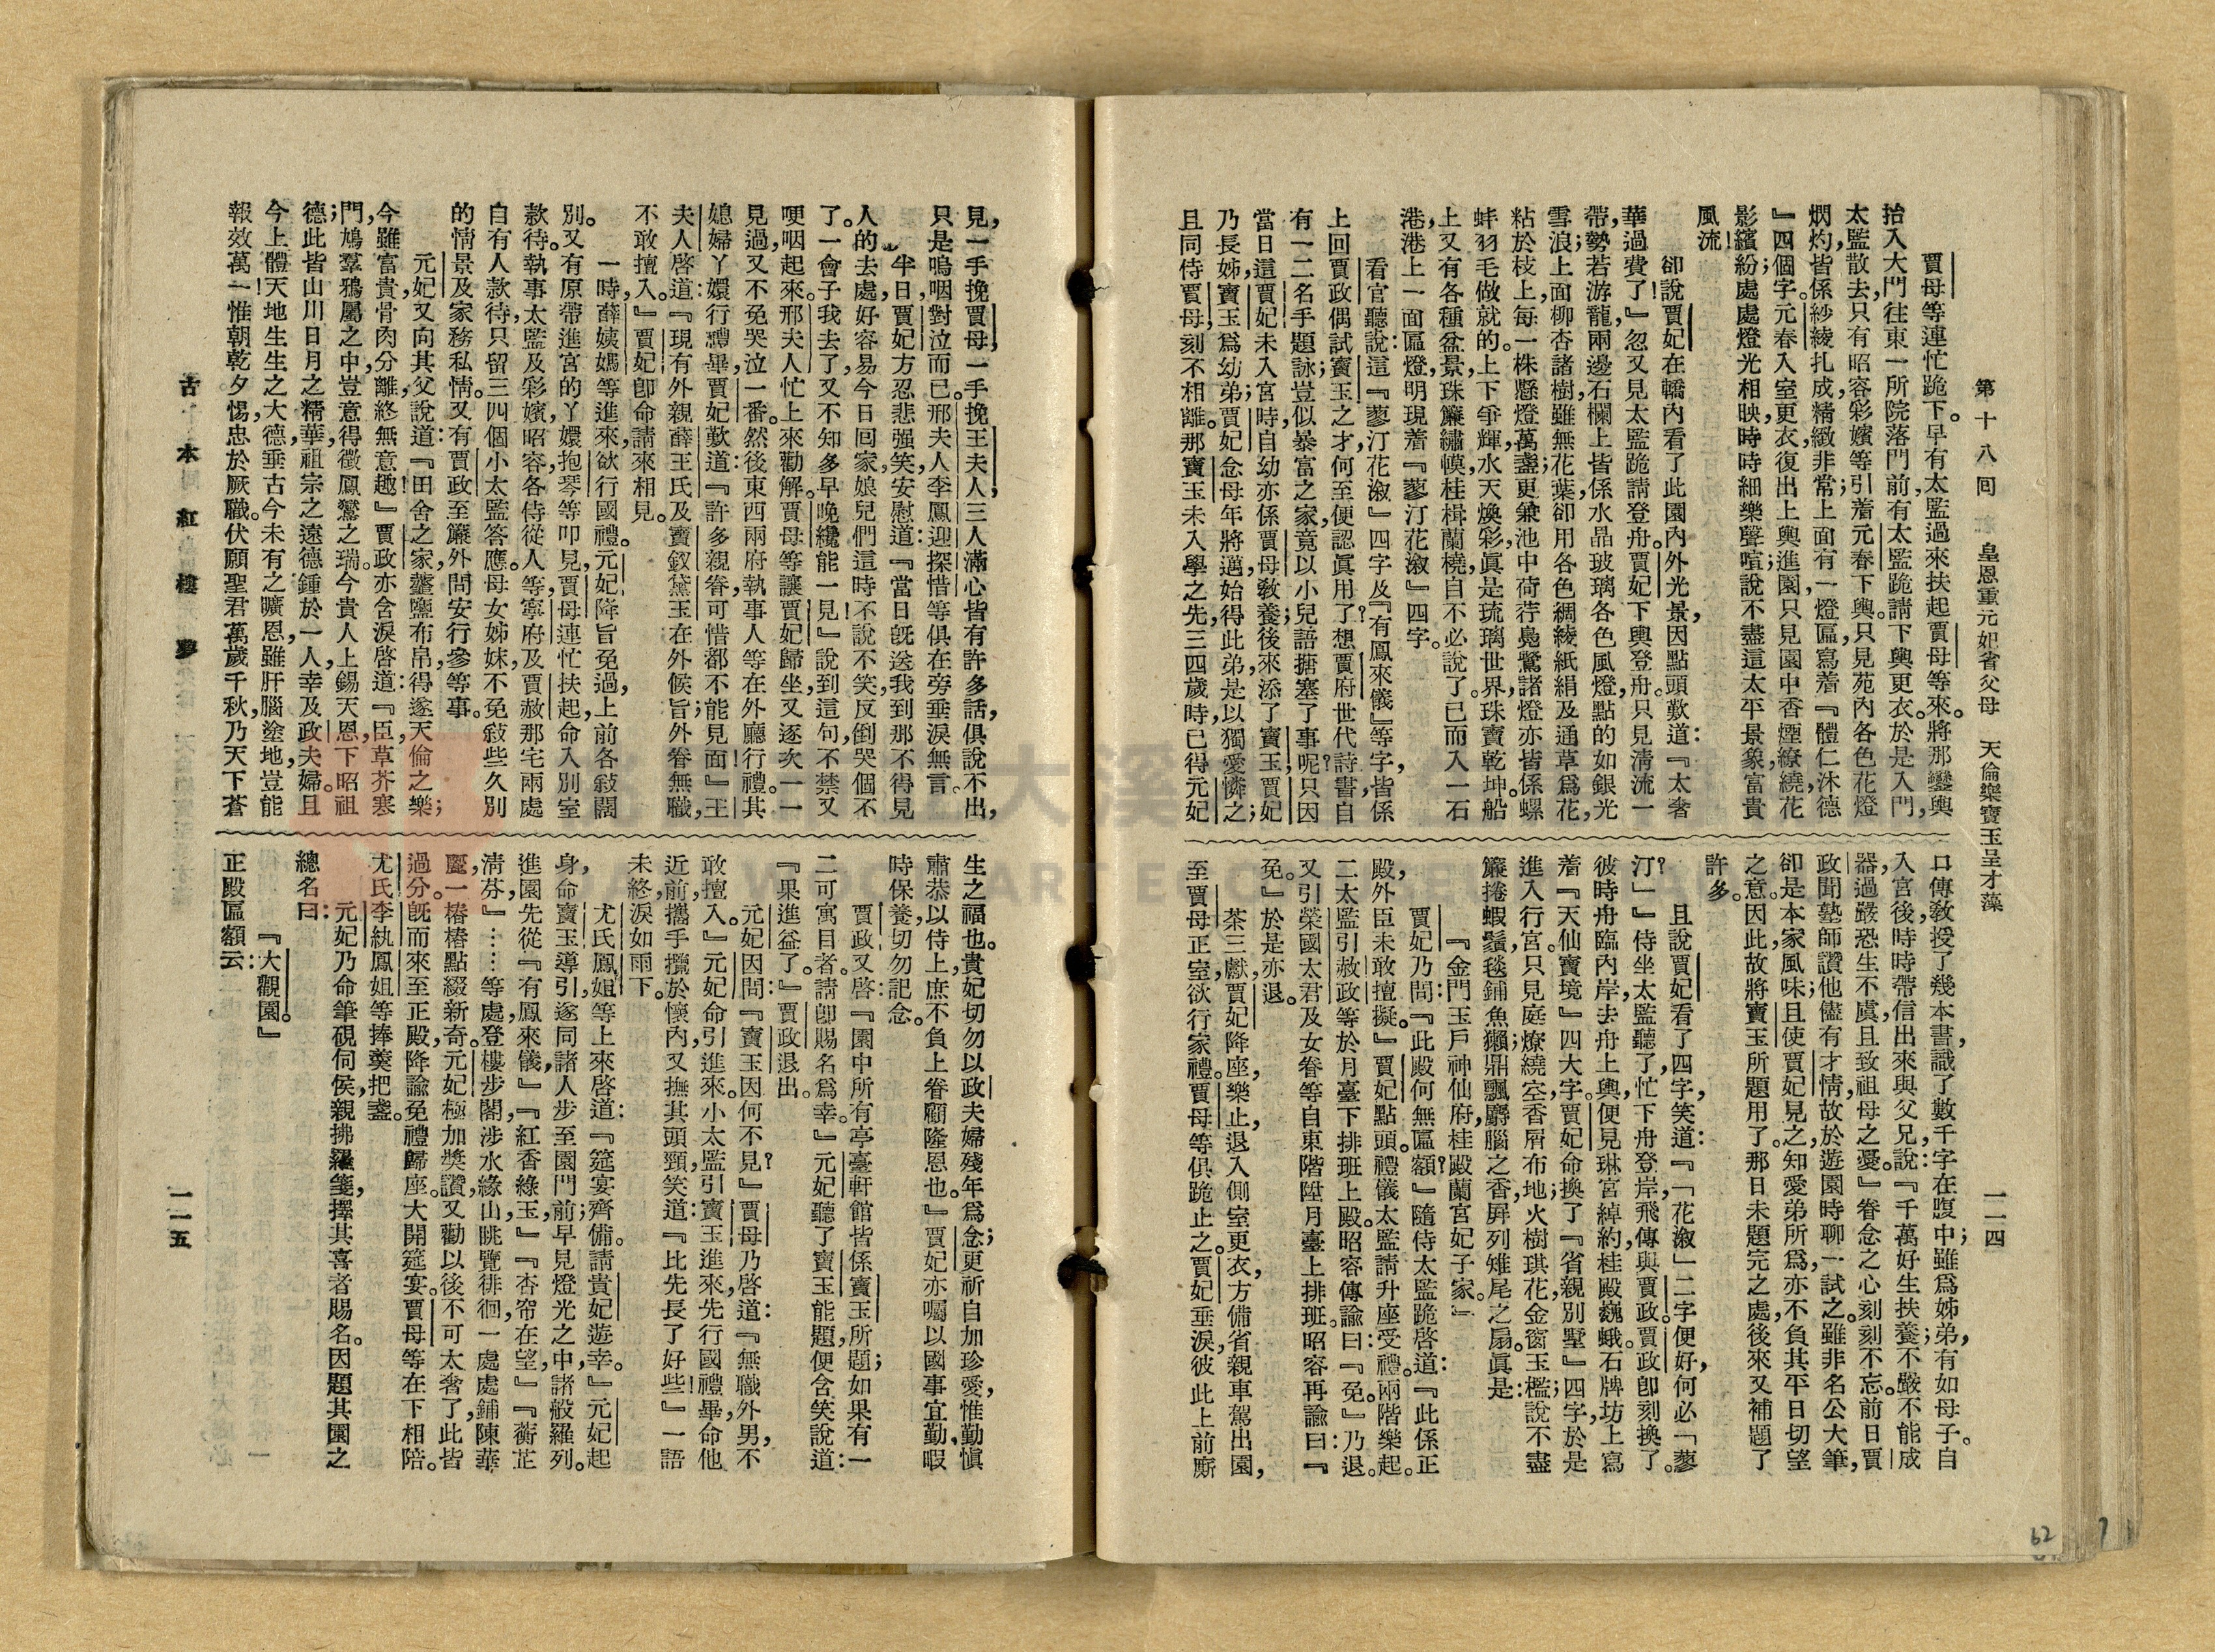 第十八回 皇恩重元妃省父母 天倫樂寶玉呈才藻
一二四
賈母等連忙跪下。早有太監過來扶起賈母等來。將那鑾輿
抬入大門往東一所院落門前,有太監跪請下輿更衣。於是入門,
太監散去,只有昭容彩嬪等引着元春下輿。只見苑內各色花燈
熌灼,皆係紗綾扎成,精緻非常;上面有一燈匾,寫着『體仁沐德
』四個字。元春入室更衣,復出上輿進園。只見園中香煙繚繞,花
影繽紛;處處燈光相映,時時細樂聲喧;說不盡這太平景象,富貴
風流!
卻說賈妃在轎內看了此園內外光景,因點頭歎道:『太奢
華過費了!』忽又見太監跪請登舟。賈妃下輿登舟。只見淸流一
帶,勢若游龍,兩邊石欄上皆係水晶玻璃各色風燈,點的如銀光
雪浪;上面柳杏諸樹,雖無花葉,卻用各色綢綾紙絹及通草爲花,
粘於枝上,每一株懸燈萬盞;更兼池中荷荇鳧鷺諸燈,亦皆係螺
蚌羽毛做就的。上下爭輝,水天煥彩,眞是琉璃世界,珠寶乾坤。船
上又有各種盆景,珠簾繡幙,桂楫蘭橈,自不必說了。已而入一石
港,港上一面匾燈,明現着『蓼汀花漵』四字。
看官聽說:這『蓼汀花漵』四字及『有鳳來儀』等字,皆係
上回賈政偶試寶玉之才,何至便認眞用了?想賈府世代詩書,自
有一二名手題詠;豈似暴富之家,竟以小兒語搪塞了事呢?只因
當日這賈妃未入宮時,自幼亦係賈母敎養;後來添了寶玉,賈妃
乃長姊,寶玉爲幼弟;賈妃念母年將邁,始得此弟,是以獨愛憐之;
且同侍賈母,刻不相離。那寶玉未入學之先,三四歲時,已得元妃
口傳敎授了幾本書,識了數千字在腹中;雖爲姊弟,有如母子。自
入宮後,時時帶信出來與父兄說:『千萬好生扶養;不嚴不能成
器,過嚴恐生不虞,且致祖母之憂。』眷念之心,刻刻不忘。前日賈
政聞塾師讚他儘有才情,故於遊園時聊一試之。雖非名公大筆,
卻是本家風味;且使賈妃見之,知愛弟所爲,亦不負其平日切望
之意。因此,故將寶玉所題用了。那日未題完之處,後來又補題了
許多。
且說賈妃看了四字,笑道:『「花漵」二字便好,何必「蓼
汀」?』侍坐太監聽了,忙下舟登岸,飛傳與賈政。賈政卽刻換了。
彼時舟臨內岸,去舟上輿,便見琳宮綽約,桂殿巍峨。石牌坊上寫
着『天仙寶境』四大字。賈妃命換了『省親別墅』四字;於是
進入行宮。只見庭燎繞空,香屑布地,火樹琪花,金窗玉檻;說不盡
簾捲蝦鬚,毯鋪魚獺,鼎飄麝腦之香,屏列雉尾之扇。眞是:
『金門玉戶神仙府,桂殿蘭宮妃子家。』
賈妃乃問:『此殿何無匾額?』隨侍太監跪啓道:『此係正
殿,外臣未敢擅擬。』賈妃點頭。禮儀太監請升座受禮。兩階樂起。
二太監引赦政等於月臺下排班上殿。昭容傳諭曰:『免。』乃退。
又引榮國太君及女眷等自東階陞月臺上排班。昭容再諭曰:『
免。』於是亦退。
茶三獻,賈妃降座,樂止,退入側室更衣,方備省親車駕出園,
至賈母正室,欲行家禮。賈母等俱跪止之。賈妃垂淚,彼此上前廝
見,一手挽賈母,一手挽王夫人,三人滿心皆有許多話,俱說不出,
只是嗚咽對泣而已。邢夫人李鳳迎探惜等俱在旁垂淚無言。
半日,賈妃方忍悲强笑,安慰道:『當日旣送我到那不得見
人的去處,好容易今日回家,娘兒們這時不說不笑,反倒哭個不
了。一會子我去了,又不知多早晚纔能一見!』說到這句,不禁又
哽咽起來。邢夫人忙上來勸解。賈母等讓賈妃歸坐,又逐次一一
見過,又不免哭泣一番。然後東西兩府執事人等在外廳行禮。其
媳婦丫嬛行禮畢,賈妃歎道:『許多親眷,可惜都不能見面!』王
夫人啓道:『現有外親薛王氏及寶釵黛玉在外候旨;外眷無職,
不敢擅入。』賈妃卽命請來相見。
一時,薛姨媽等進來,欲行國禮。元妃降旨免過,上前各敍闊
別。又有原帶進宮的丫嬛抱琴等叩見,賈母連忙扶起,命入別室
款待。執事太監及彩嬪昭容,各侍從人等,寧府及賈赦那宅兩處
自有人款待,只留三四個小太監答應。母女姊妹,不免敍些久別
的情景及家務私情。又有賈政至簾外問安行參等事。
元妃又向其父說道:『田舍之家,虀鹽布帛,得遂天倫之樂;
今雖富貴,骨肉分離,終無意趣!』賈政亦含淚啓道:『臣,草芥寒
門,鳩羣鴉屬之中,豈意得徵鳳鸞之瑞。今貴人上錫天恩,下昭祖
德;此皆山川日月之精華,祖宗之遠德鍾於一人,幸及政夫婦。且
今上體天地生生之大德,垂古今未有之曠恩,雖肝腦塗地,豈能
報效萬一!惟朝乾夕惕,忠於厥職。伏願聖君萬歲千秋,乃天下蒼
生之福也。貴妃切勿以政夫婦殘年爲念;更祈自加珍愛,惟勤愼
肅恭以侍上,庶不負上眷顧隆恩也。』賈妃亦囑以國事宜勤,暇
時保養,切勿記念。
賈政又啓:『園中所有亭臺軒館,皆係寶玉所題;如果有一
二可寓目者,請卽賜名爲幸。』元妃聽了寶玉能題,便含笑說道:
『果進益了。』賈政退出。
元妃因問:『寶玉因何不見?』賈母乃啓道:『無職外男,不
敢擅入。』元妃命引進來。小太監引寶玉進來,先行國禮畢,命他
近前,攜手攬於懷內,又撫其頭頸,笑道:『比先長了好些!』一語
未終,淚如雨下。
尤氏鳳姐等上來啓道:『筵宴齊備。請貴妃遊幸。』元妃起
身,命寶玉導引,遂同諸人步至園門前。早見燈光之中,諸般羅列。
進園先從『有鳳來儀』『紅香綠玉』『杏帘在望』『蘅芷
淸芬』⋯⋯等處,登樓步閣,涉水緣山,眺覽徘徊。一處處鋪陳華
麗,一椿椿點綴新奇。元妃極加獎讚,又勸以後不可太奢了,此皆
過分。旣而來至正殿,降諭免禮歸座。大開筵宴。賈母等在下相陪。
尤氏李紈鳳姐等捧羹把盞。
元妃乃命筆硯伺侯,親拂羅箋,擇其喜者賜名。因題其園之
總名曰:
『大觀園。』
正殿匾額云:
古本紅樓夢
一二五
62